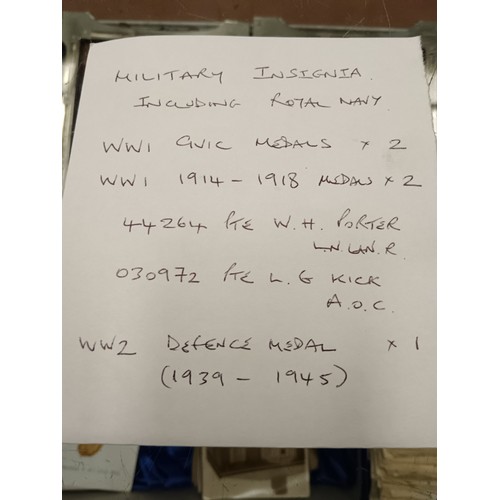 MILITARY INSIGNIA.
INCLUDING ROYAL NAVY.
WW1 CIVIC MEDALS x 2
WW1 1914 - 1918 MEDALS x 2
44264 PTE W. H. PORTER
L.N LAN. R.
030972 PTE L. G KICK
A.O.C.
WW2 DEFENCE MEDAL x 1
(1939 - 1945)